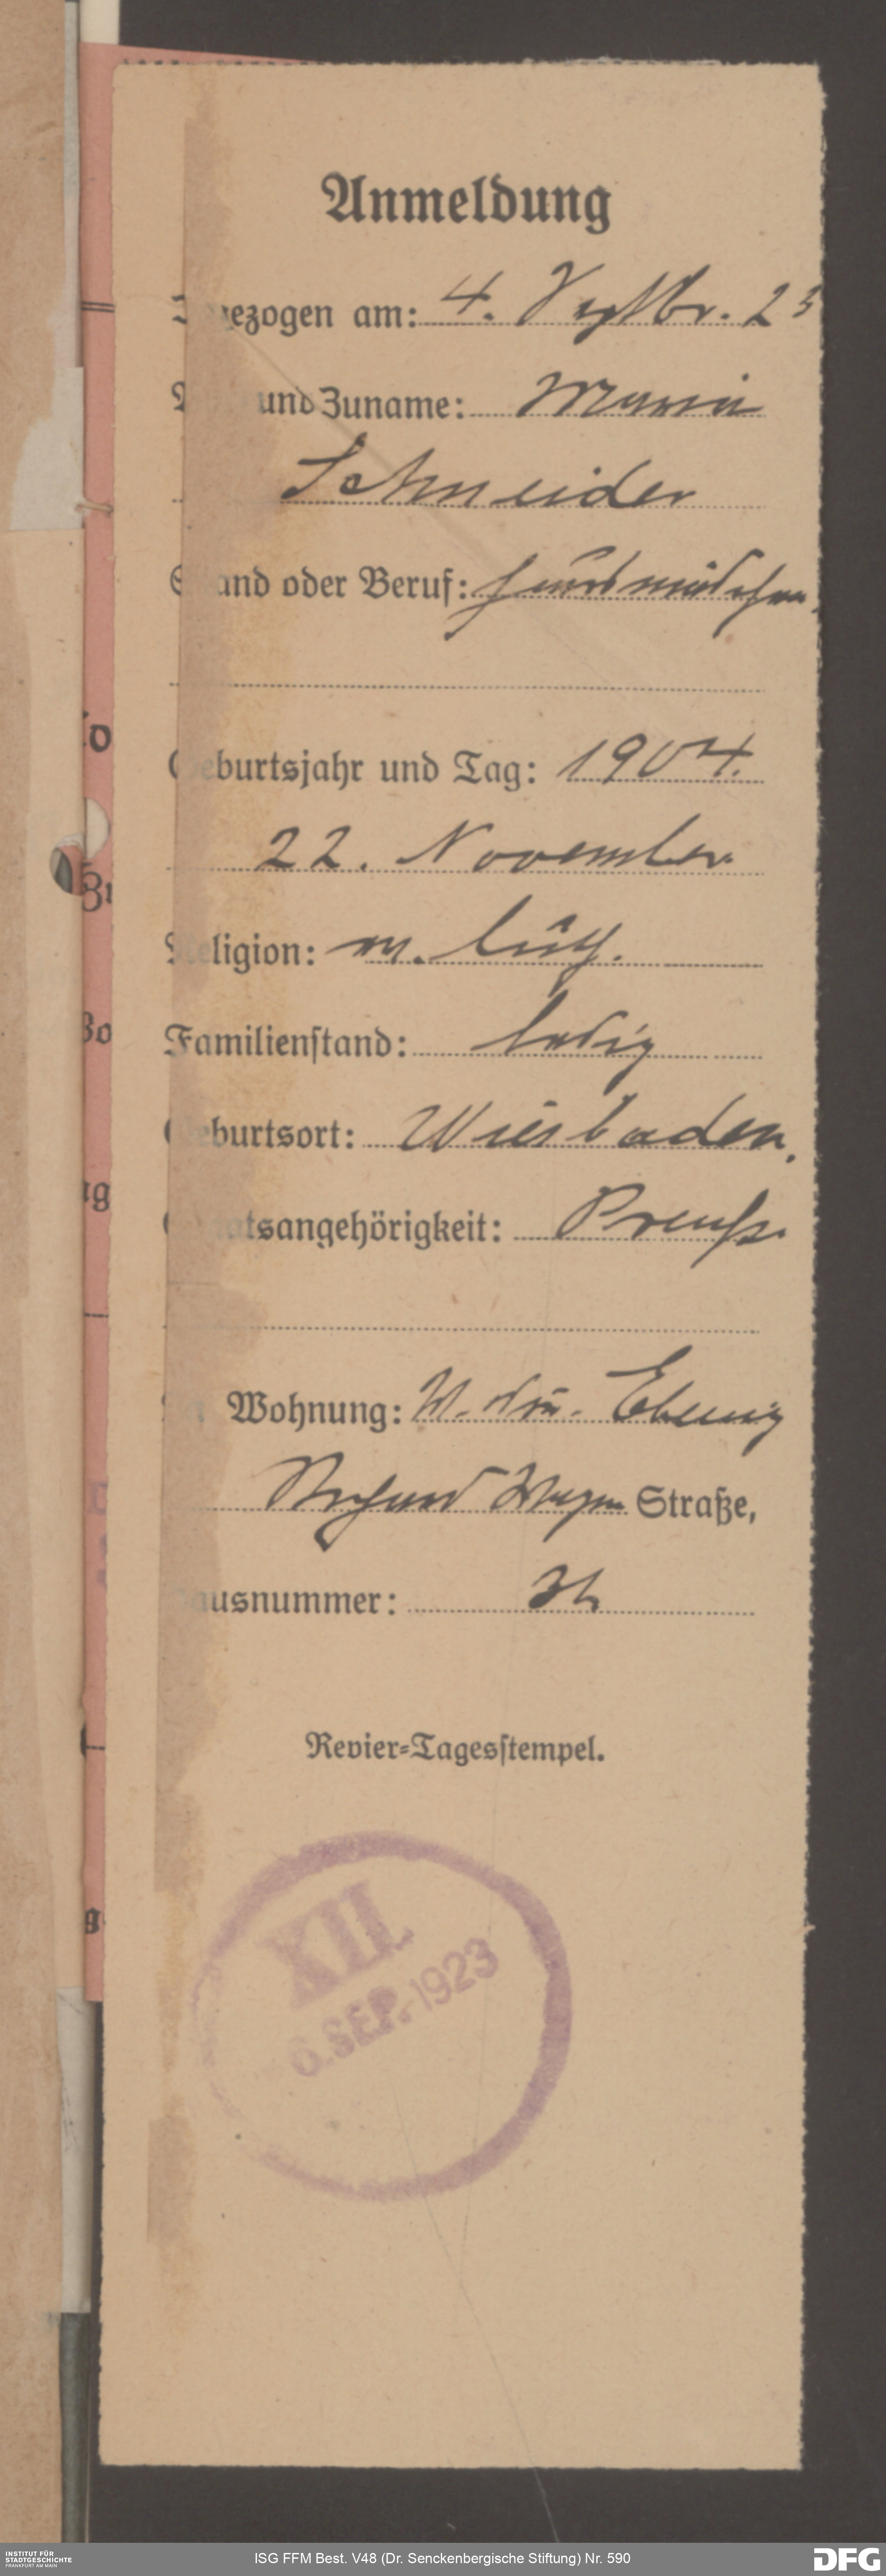 Anmeldung
gezogen am: 4. Septbr. 23
und Zuname: Maria
Schneider
Stand oder Beruf: Hausmädchen.
Geburtsjahr und Tag: 1904.
22. November
Religion: ev. luth.
Familienstand: ledig
Geburtsort: Wiesbaden.
Staatsangehörigkeit: Preuß.
Wohnung:
Straße,
Hausnummer:
Revier-Tagesstempel.
XII.
6. SEP. 1923
INSTITUT FÜR
STADTGESCHICHTE
FRANKFURT AM MAIN
ISG FFM Best. V48 (Dr. Senckenbergische Stiftung) Nr. 590
DFG